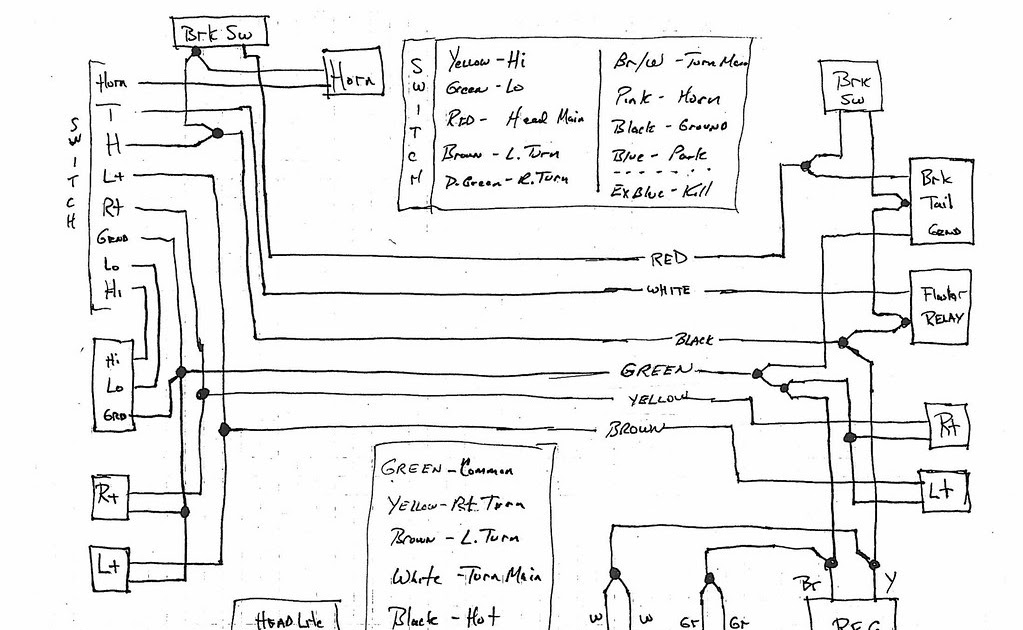 Brk Sw
Horn
SWITCH
Yellow - Hi
Green - Lo
RED - Head Main
Brown - L. Turn
D. Green - R. Turn
Br/W - Turn Main
Pink - Horn
Black - Ground
Blue - Park
Ex Blue - Kill
Brk
Sw
SWITCH
Horn
T
H
Lt
Rt
GRND
Lo
Hi
Brk
Tail
GRND
RED
WHITE
Flasher
RELAY
BLACK
GREEN
YELLOW
BROWN
Hi
Lo
GRD
Rt
Lt
Rt
Lt
GREEN - Common
Yellow - Rt. Turn
Brown - L. Turn
White - Turn Main
Black - Hot
HEAD Lite
W
W
Gr
Gr
Br
Y
REG